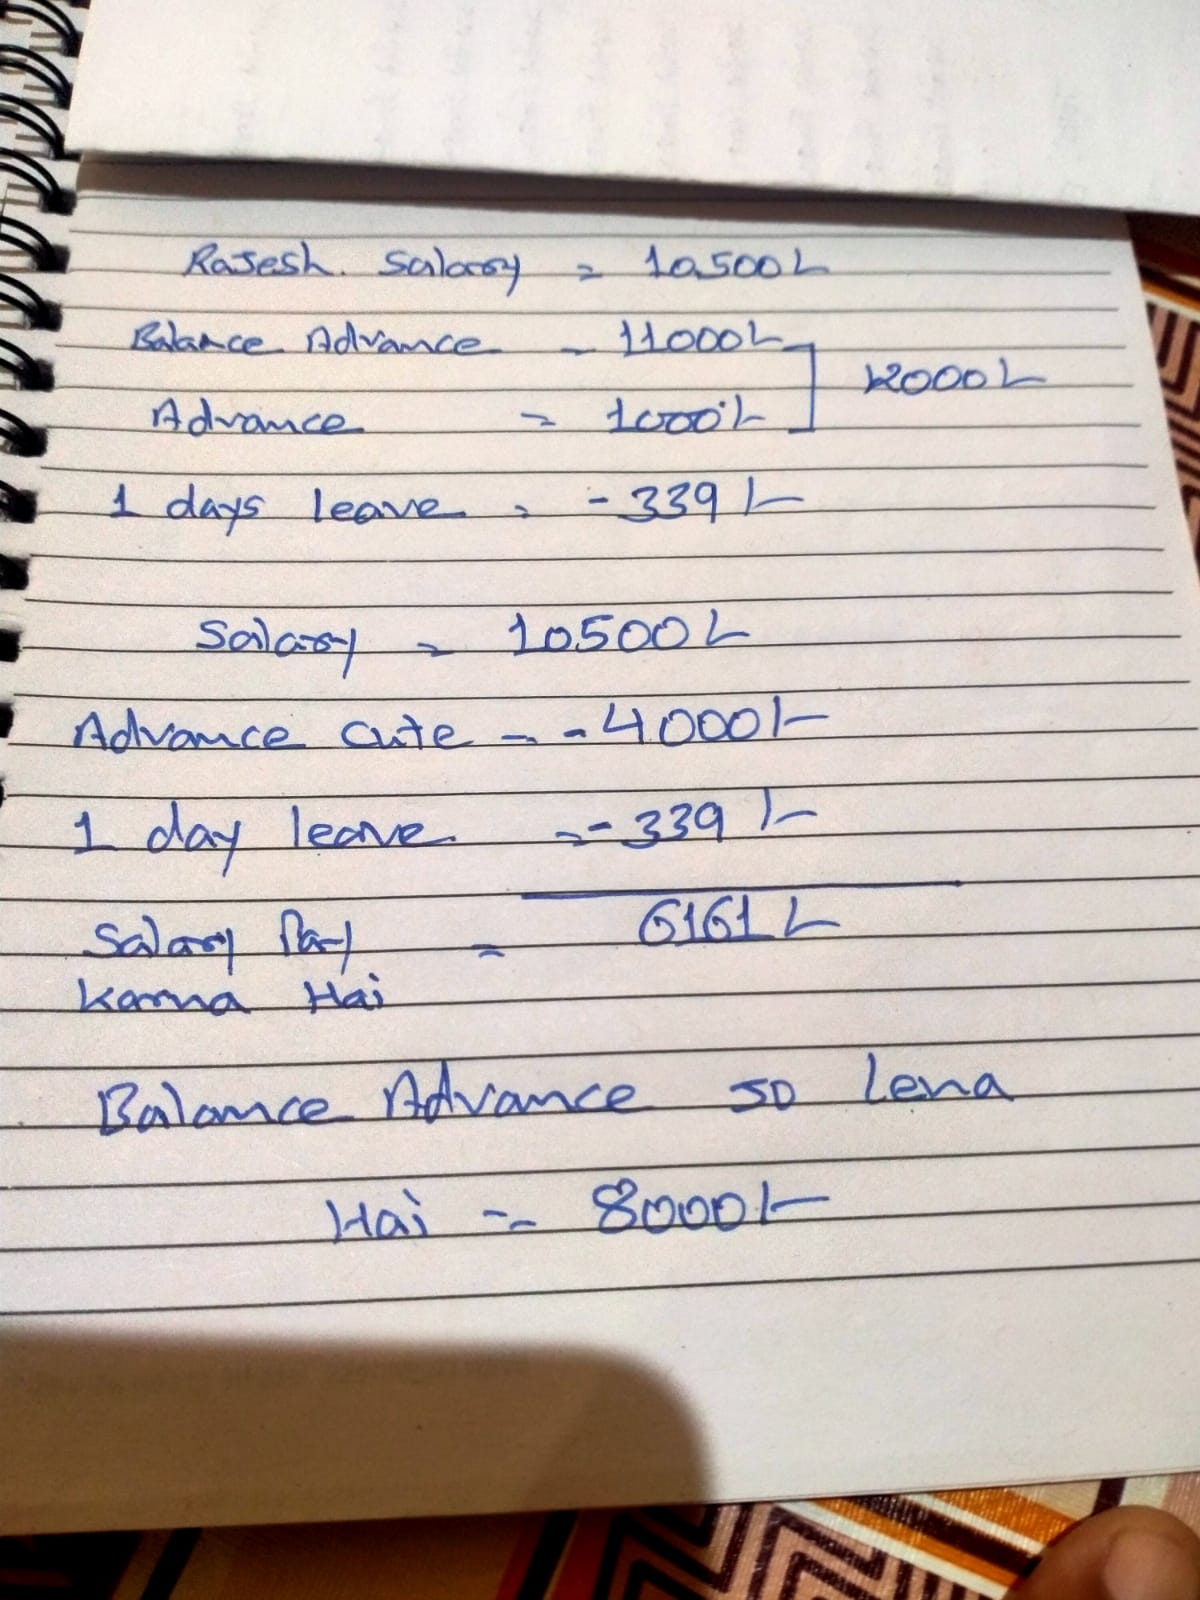 Rajesh. Salary = 10,500/-
Balance Advance - 11000/-
12000/-
Advance = 1000/-
1 days leave = -339/-
Salary = 10500/-
Advance cute - - 4000/-
1 day leave = -339/-
6161/-
Salary Pay =
Karna Hai
Balance Advance JO Lena
Hai -- 8000/-